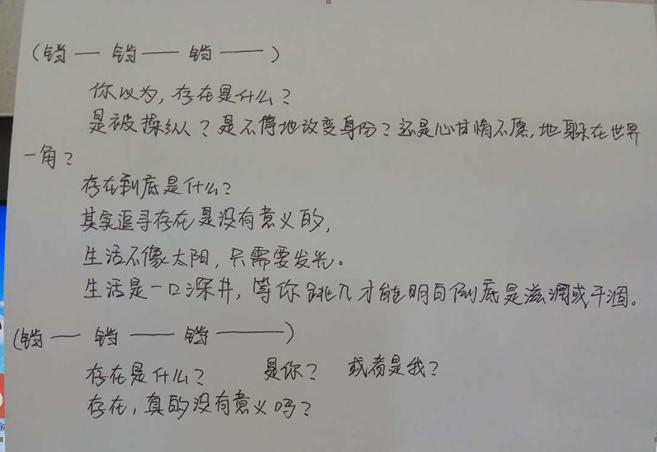 (铛— 铛—— 铛——)
你以为,存在是什么?
是被操纵?是不停地改变身份?还是心甘情不愿,地躲在世界
一角?
存在到底是什么?
其实追寻存在是没有意义的,
生活不像太阳,只需要发光。
生活是一口深井,等你跳入才能明白倒底是滋润或干涸。
(铛— 铛—— 铛———)
存在是什么? 是你? 或者是我?
存在,真的没有意义吗?